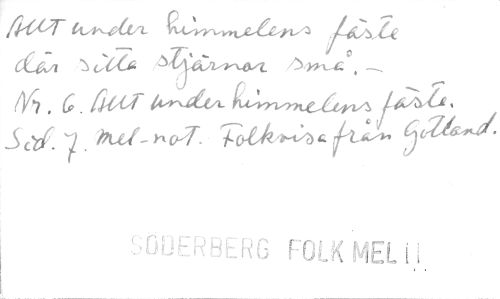 Allt under himmelens fäste
där sitta stjärnor små. –
Nr. 6. Allt under himmelens fäste.
Sid. 7. mel-not. Folkvisa från Gotland.
SÖDERBERG FOLK MEL II